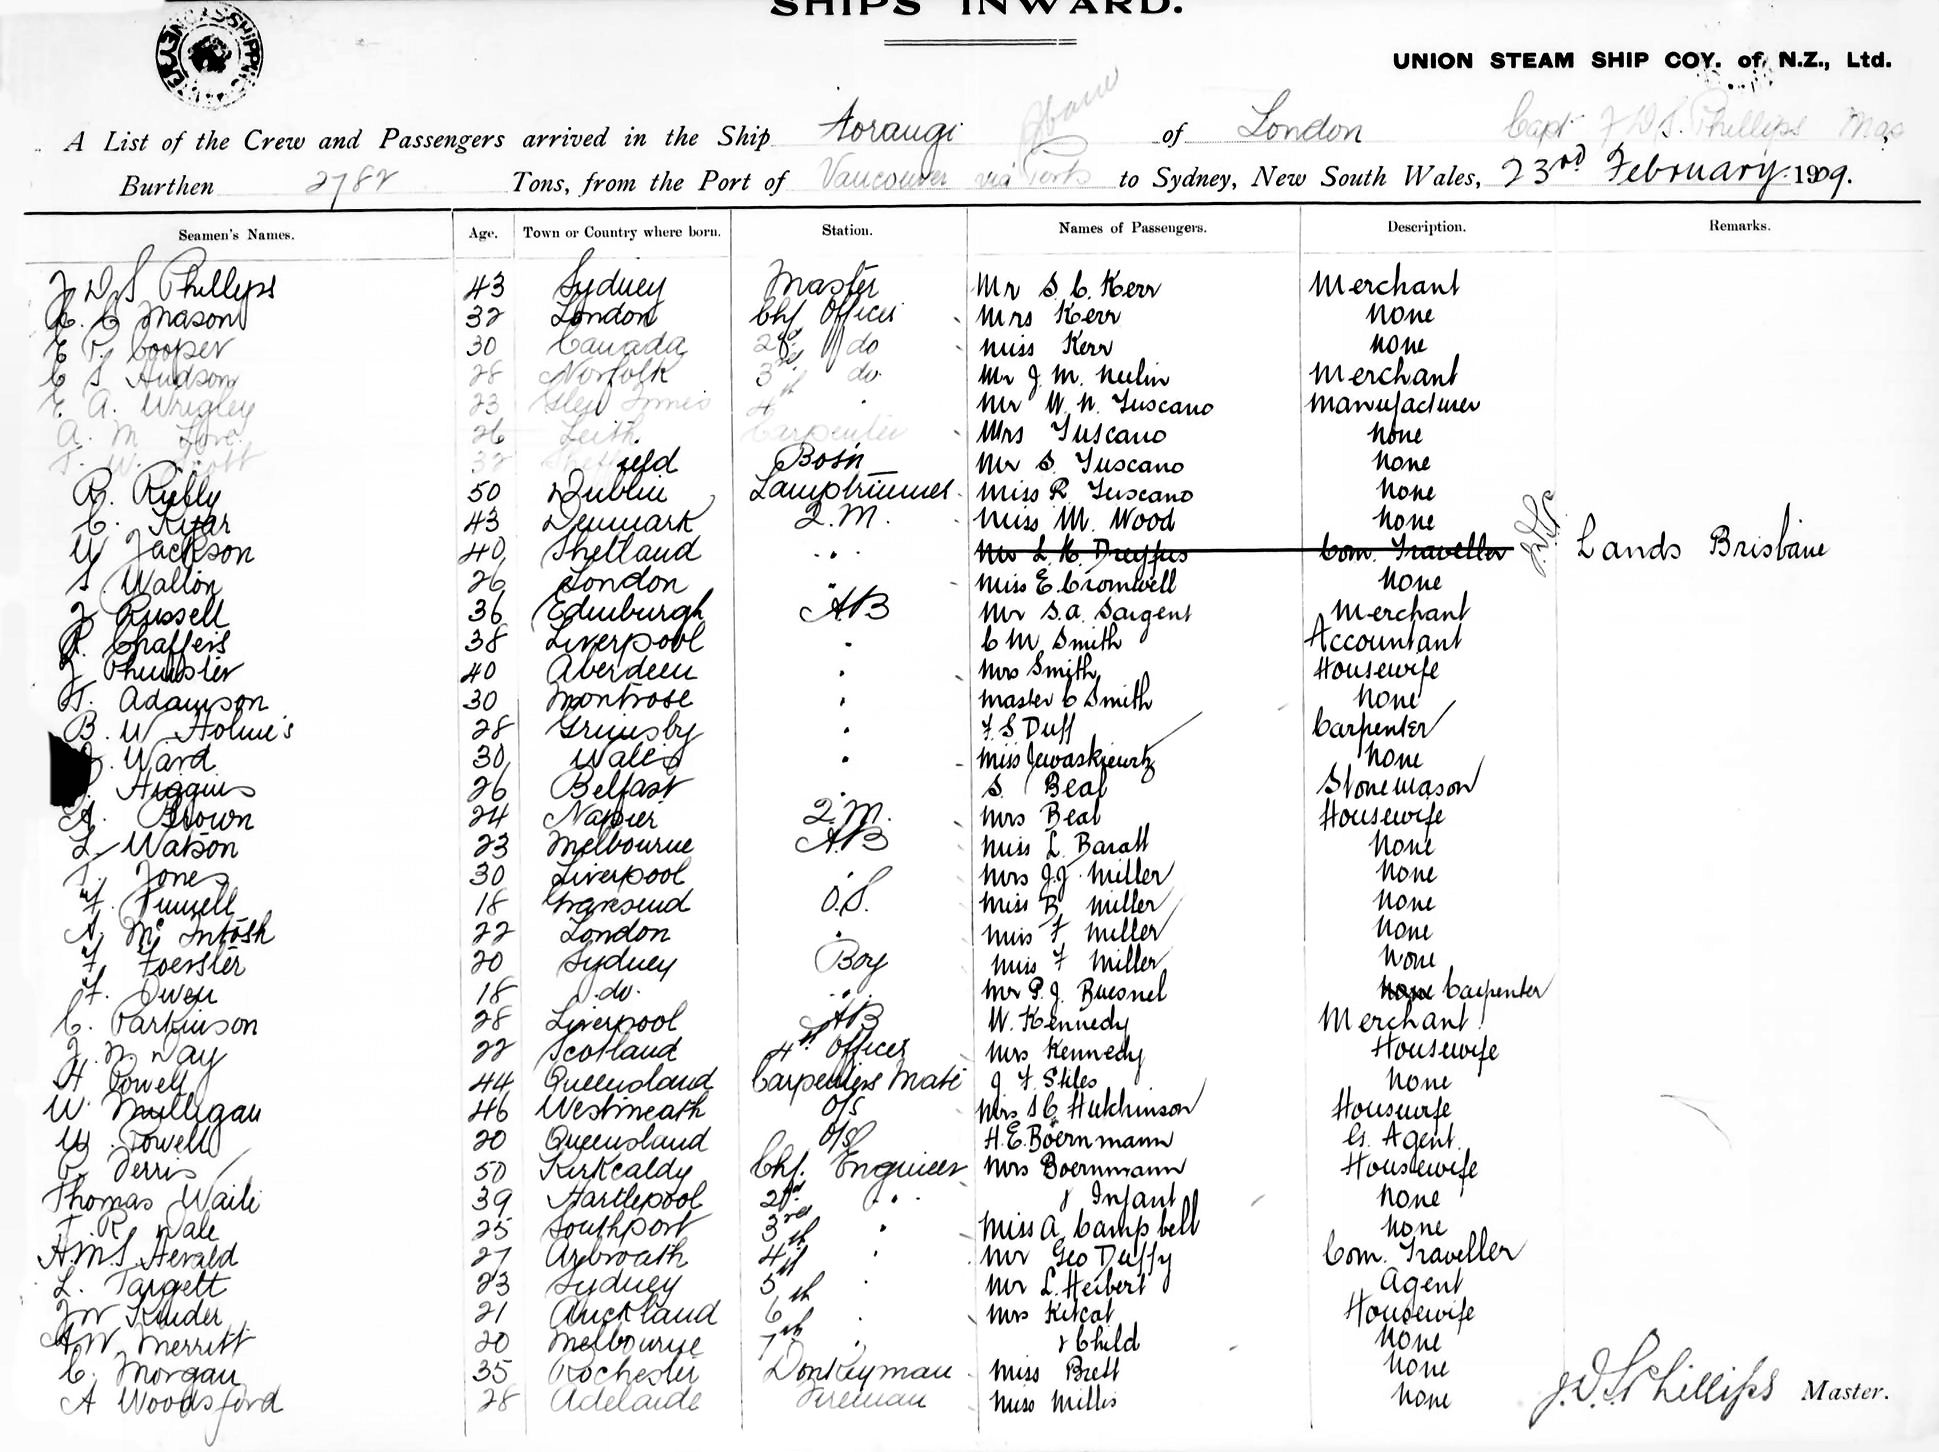 SHIPS INWARD.
UNION STEAM SHIP COY. of N.Z., Ltd.
A List of the Crew and Passengers arrived in the Ship Aorangi of London Capt J D S. Phillips Mas
Burthen 2782 Tons, from the Port of Vancouver via Ports to Sydney, New South Wales, 23rd February 1909.
Seamen's Names. Age. Town or Country where born. Station. Names of Passengers. Description. Remarks.
J D S Phillips 43 Sydney Master Mr S. C. Kerr Merchant
C Mason 32 London Chf Officer Mrs Kerr None
E P. Cooper 30 Canada 2nd do Miss Kerr None
C S Hudson 28 Norfolk 3rd do. Mr J. M. Merchant
E A. Wrigley 23 Glen Innes 4th Mr W. N. Tuscano Manufacturer
A. M Love 26 Leith Carpenter Mrs Tuscano None
T. W. Scott 32 Sheffield Bosn Mr S. Tuscano None
R. Rielly 50 Dublin Lamptrimmer Miss R Tuscano None
C. 43 Denmark Q.M. Miss M. Wood None
W Jackson 40 Shetland " Mr L. K. Dreyfus Com. Traveller J.D.S.P. Lands Brisbane
S. Walton 26 London " Miss E. Cromwell None
J Russell 36 Edinburgh AB Mr S. A. Sargent Merchant
R. Chaffers 38 Liverpool " C M Smith Accountant
J 40 Aberdeen " Mrs Smith Housewife
T. Adamson 30 Montrose " Master C Smith None
B. W Holmes 28 Grimsby " F. S Duff Carpenter
J. Ward 30 Wales " Miss None
Higgins 26 Belfast " S. Beal Stonemason
A. Brown 24 Napier Q.M. Mrs Beal Housewife
L. Watson 23 Melbourne AB Miss L. Baratt None
T. Jones 30 Liverpool " Mrs J.J. Miller None
F. 18 Gravesend O.S. Miss B Miller None
A. McIntosh 22 London " Miss F Miller None
F. Foerster 20 Sydney Boy Miss F Miller None
F. Owen 18 do. " Mr P. J. Buesnel None Carpenter
C. Parkinson 28 Liverpool AB W. Kennedy Merchant
J. N Day 22 Scotland 4th Officer Mrs Kennedy Housewife
H Powell 44 Queensland Carpenters Mate J F. Stiles None
W. Mulligan 46 Westmeath O/S Mrs S C Hutchinson Housewife
W. Powell 20 Queensland O/S H. E. Boernmann Cs. Agent
P. Ferris 50 Kirkcaldy Chf. Engineer Mrs Boernmann Housewife
Thomas Waite 39 Hartlepool 2nd " & Infant None
T. R. Dale 25 Southport 3rd " Miss A Campbell None
H.M.S Herald 27 Arbroath 4th " Mr Geo Duffy Com. Traveller
L. Targett 23 Sydney 5th " Mr L. Heibert Agent
J W Kinder 21 Auckland 6th " Mrs Kitcat Housewife
A W Merritt 20 Melbourne 7th " & Child None
C. Morgan 35 Rochester Donkeyman Miss Brett None
A Woodsford 28 Adelaide Fireman Miss Millis None
J. D. S Phillips Master.